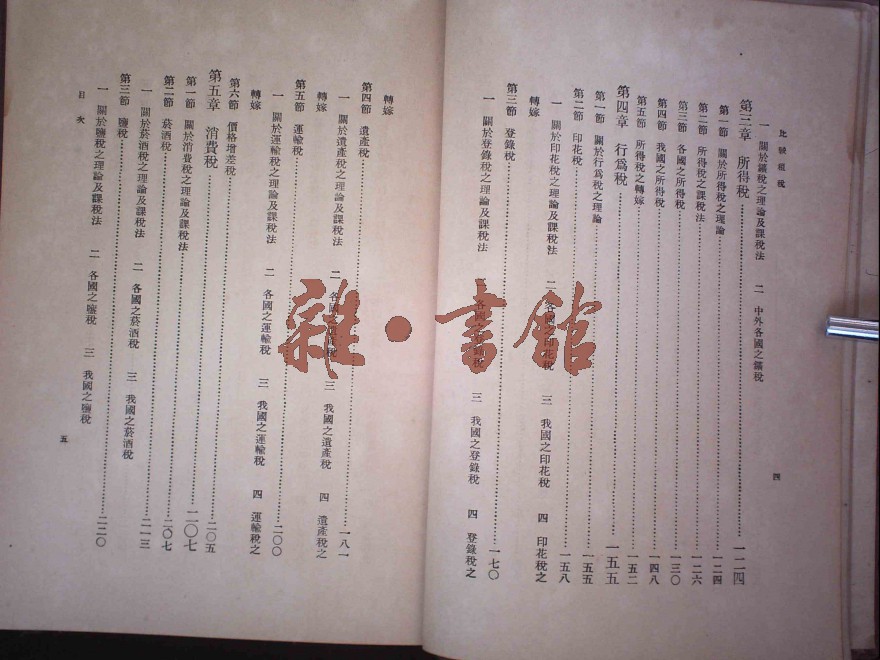 比較租稅
一 關於鑛稅之理論及課稅法 二 中外各國之鑛稅
第三章 所得稅……一二四
第一節 關於所得稅之理論……一二四
第二節 所得稅之課稅法……一二六
第三節 各國之所得稅……一三〇
第四節 我國之所得稅……一四八
第五節 所得稅之轉嫁……一五二
第四章 行爲稅……一五五
第一節 關於行爲稅之理論……一五五
第二節 印花稅……一五八
一 關於印花稅之理論及課稅法 二 各國之印花稅 三 我國之印花稅 四 印花稅之
轉嫁
第三節 登錄稅……一七〇
一 關於登錄稅之理論及課稅法 二 各國之登錄稅 三 我國之登錄稅 四 登錄稅之
四
轉嫁
第四節 遺產稅……一八一
一 關於遺產稅之理論及課稅法 二 各國之遺產稅 三 我國之遺產稅 四 遺產稅之
轉嫁
第五節 運輸稅……二〇〇
一 關於運輸稅之理論及課稅法 二 各國之運輸稅 三 我國之運輸稅 四 運輸稅之
轉嫁
第六節 價格增差稅……二〇五
第五章 消費稅……二〇七
第一節 關於消費稅之理論及課稅法……二〇七
第二節 菸酒稅……二一三
一 關於菸酒稅之理論及課稅法 二 各國之菸酒稅 三 我國之菸酒稅
第三節 鹽稅……二二〇
一 關於鹽稅之理論及課稅法 二 各國之鹽稅 三 我國之鹽稅
目次
五
雜·書館